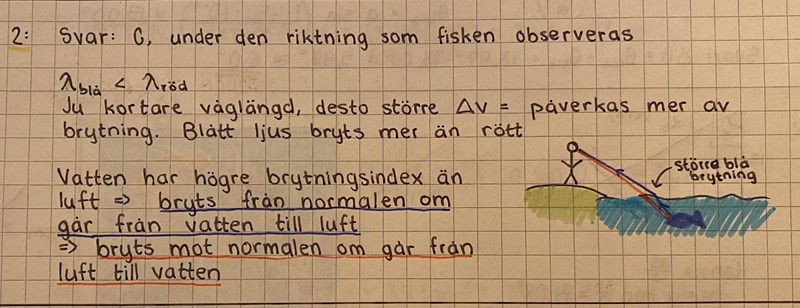 2: Svar: C, under den riktning som fisken observeras
λblå < λröd
Ju kortare våglängd, desto större Δv = påverkas mer av
brytning. Blått ljus bryts mer än rött
Vatten har högre brytningsindex än
luft => bryts från normalen om
går från vatten till luft
=> bryts mot normalen om går från
luft till vatten
större blå
brytning